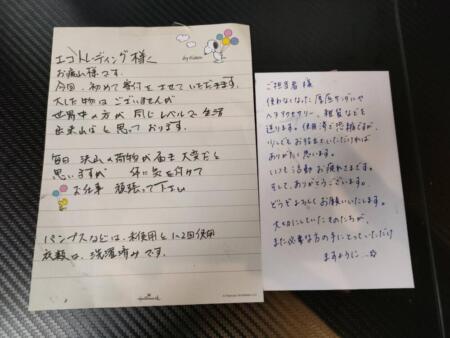 エコトレーディング様へ
お疲れ様です。
今回、初めて寄付をさせていただきます。
大した物はございませんが
世界中の方が同じレベルで生活
出来ればと思っております。
毎日 沢山の荷物が届き大変だと
思いますが 体に気を付けて
お仕事 頑張って下さい
パンプスなどは、未使用と1〜2回使用
衣類は、洗濯済みです。
Hallmark
ご担当者様
使わなくなった
ヘアアクセサリー、雑貨などを
送ります。使用済で恐縮ですが、
少しでもお役立ていただければ
ありがたく思います。
いつも活動お疲れさまです。
そして、ありがとうございます。
どうぞよろしくお願いいたします。
大切にしていたものたちが、
また必要な方の手にとっていただけ
ますように…☆